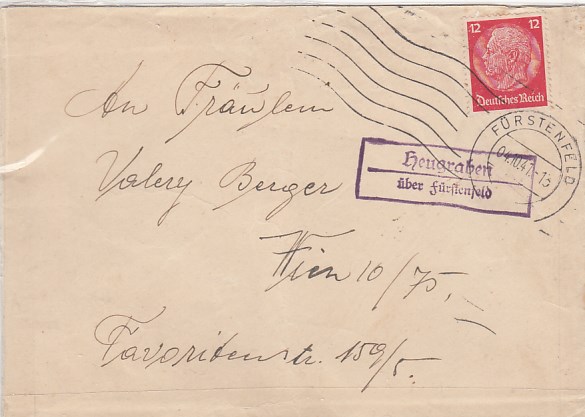 12 12
Deutsches Reich
FÜRSTENFELD
04.10.41.-13
Heugraben
über Fürstenfeld
An Fräulem
Valery Berger
Wien 10/75,
Favoritenstr. 159/5.